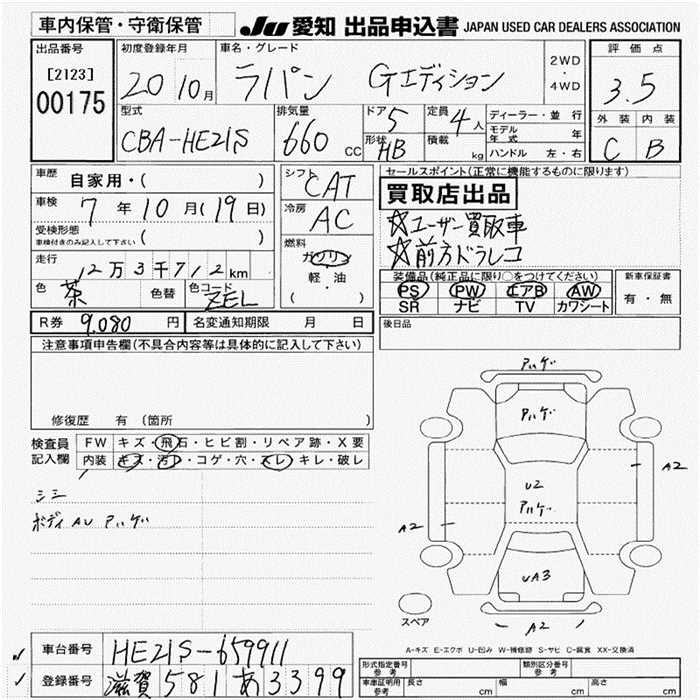 車内保管・守衛保管
JU 愛知 出品申込書 JAPAN USED CAR DEALERS ASSOCIATION
出品番号
[2123]
00175
初度登録年月
20 10月
車名・グレード
ラパン Gエディション
2WD
・
4WD
評価点
3.5
外装 内装
C B
型式
CBA-HE21S
排気量
660 CC
ドア 5
形状 HB
定員 4人
積載 kg
ディーラー・並行
モデル年式 年
ハンドル 左・右
車歴 自家用・( )
車検 7年10月(19日)
受検形態
車検付きのみ記入して下さい ( )
走行 12万3千712km
色 茶 色替 色コード ZEL
シフト CAT
冷房 AC
燃料
ガソリン
軽・油
( )
セールスポイント(正常に機能するものに限ります)
買取店出品
☆ユーザー買取車
☆前方ドラレコ
装備品(純正品に限り○をつけてください)
PS PW エアB AW
SR ナビ TV カワシート
新車保証書
有・無
R券 9,080円 名変通知期限 月 日
後日品
注意事項申告欄(不具合内容等は具体的に記入して下さい)
修復歴 有 (箇所 )
検査員記入欄
FW キズ・飛石・ヒビ割・リペア跡・X要
内装 キズ・汚レ・コゲ・穴・スレ・キレ・破レ
シミ
ボディ AU アハゲ
アハゲ
アハゲ
U2
アハゲ
A2
A2
UA3
A2
スペア
A-キズ E-エクボ U-凹み W-補修跡 S-サビ C-腐食 XX-交換済
車台番号 HE21S-659911
登録番号 滋賀 581 あ 3399
形式指定番号 参考
類別区分番号 参考
車庫証明用 参考 長さ cm 幅 cm 高さ cm